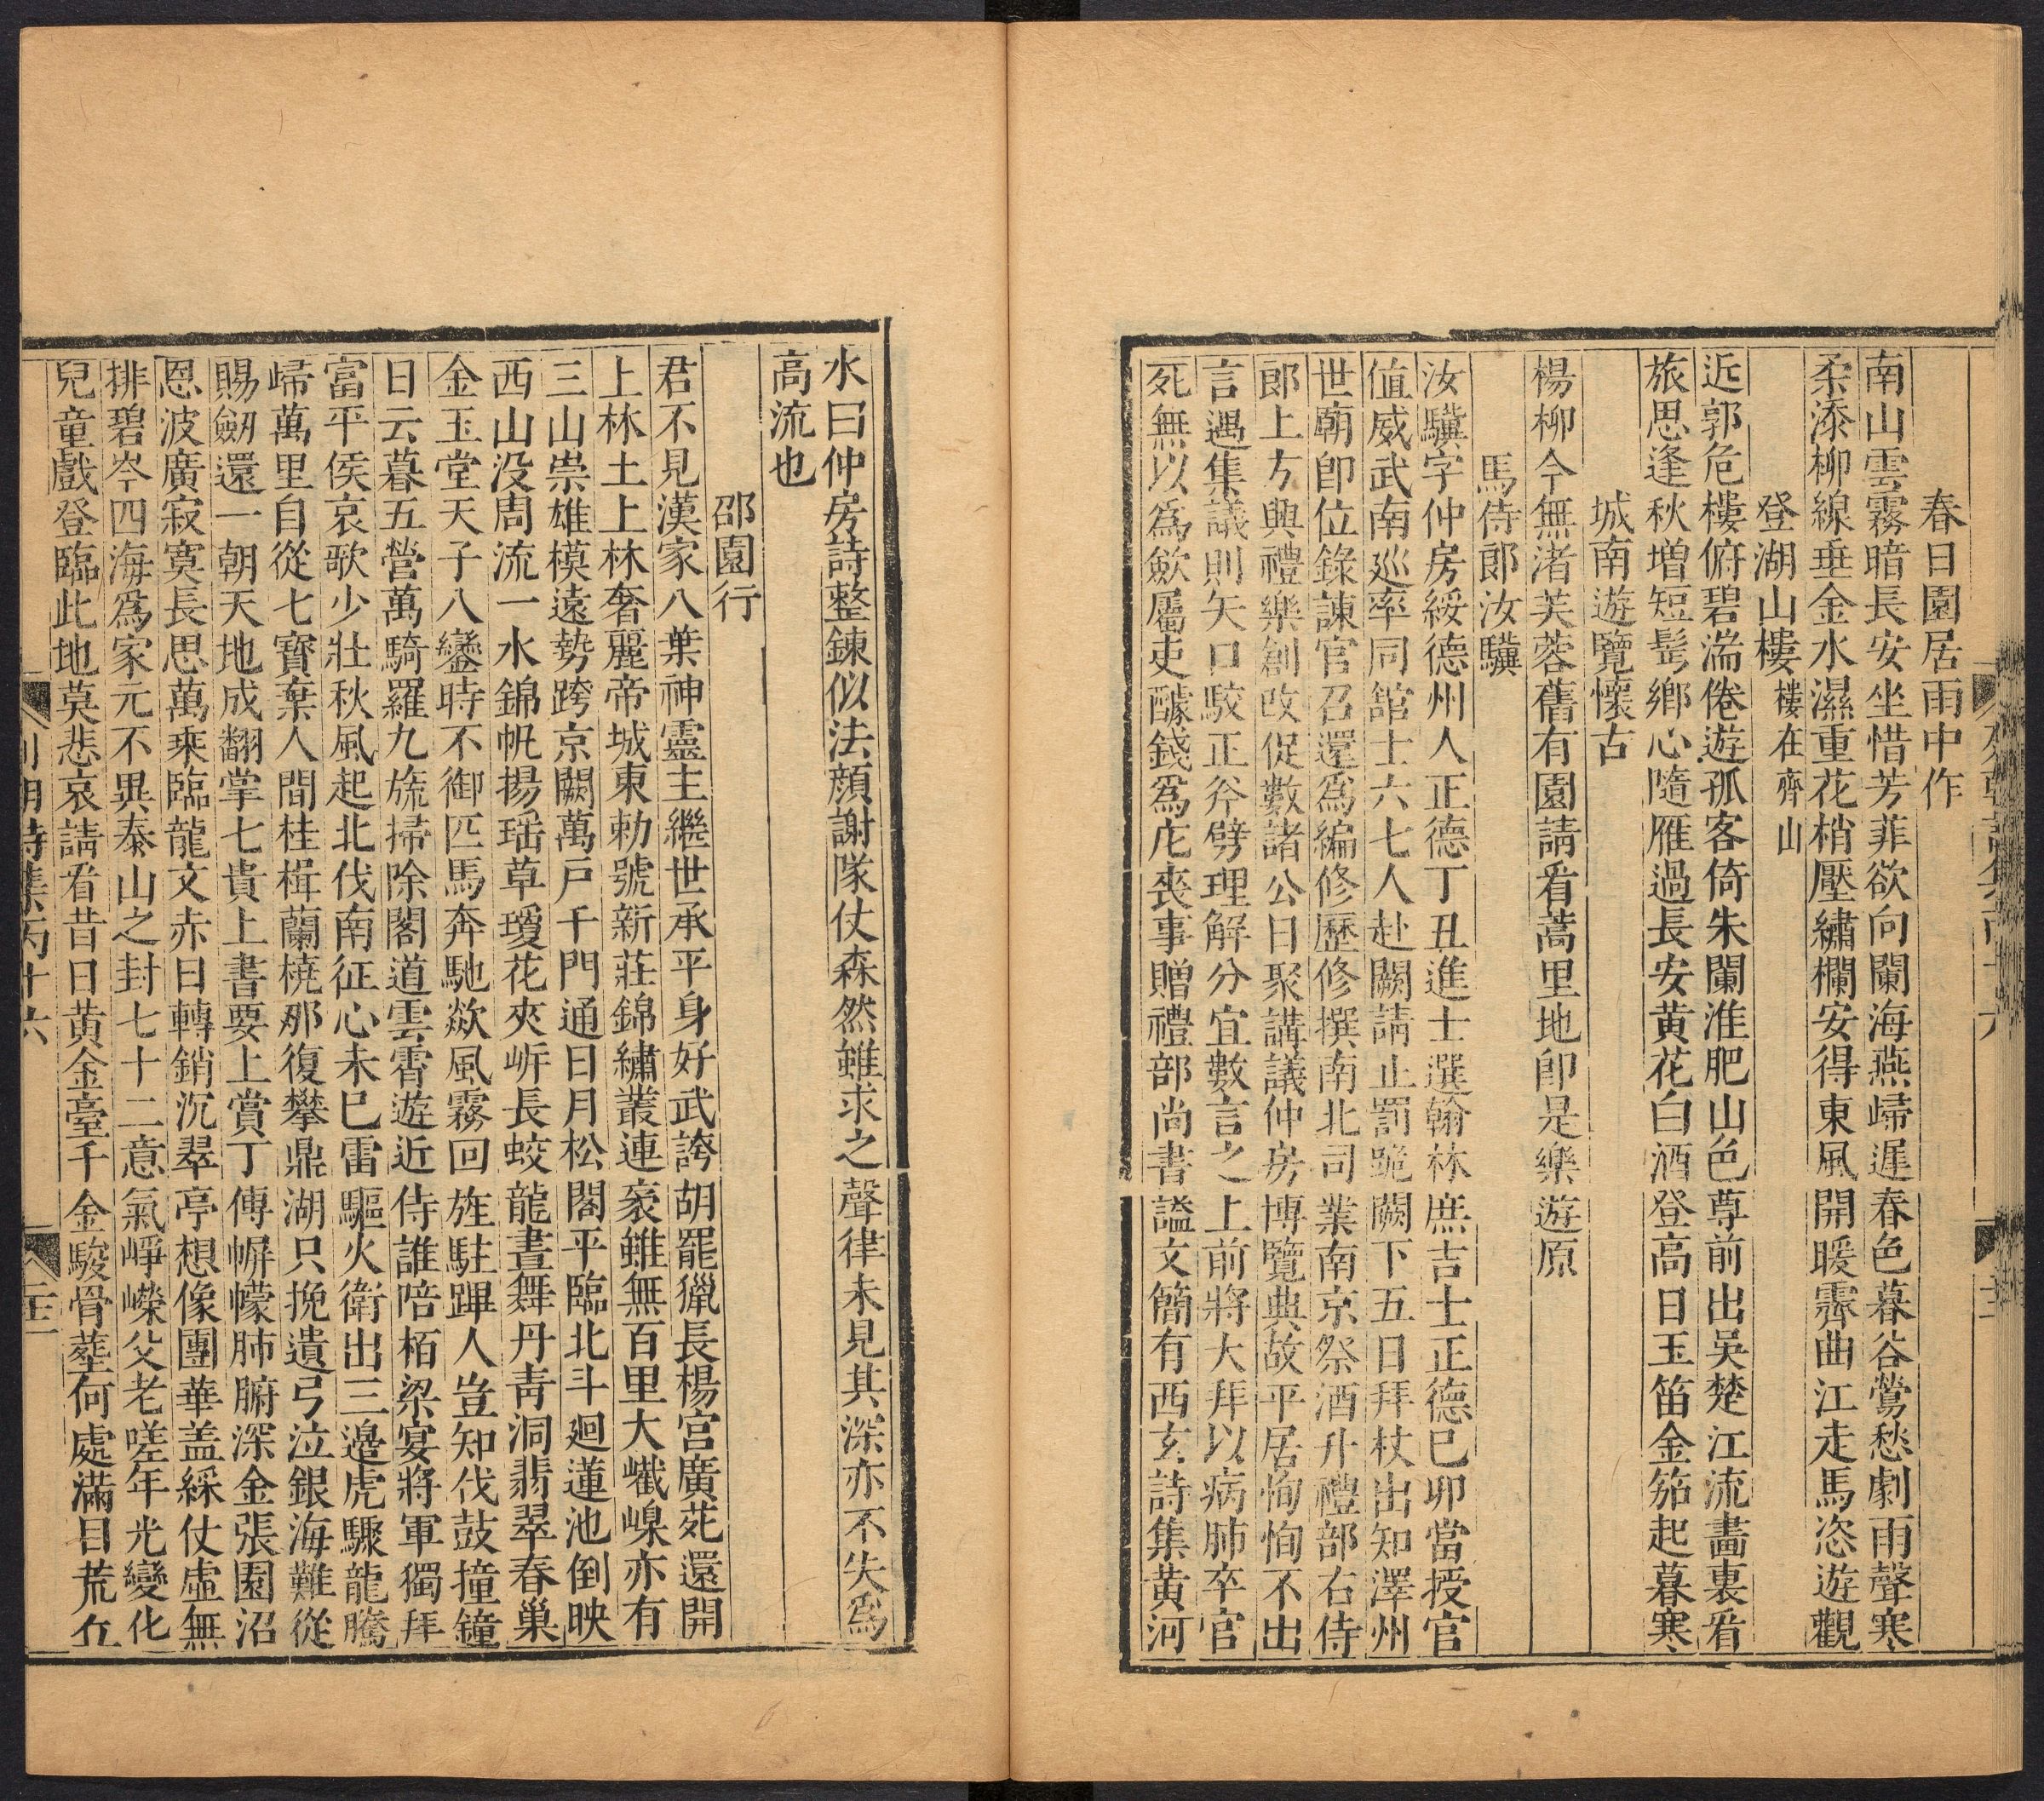 春日園居雨中作
南山雲霧暗長安坐惜芳菲欲向闌海燕歸遲春色暮谷鶯愁劇雨聲寒
柔添柳線垂金水濕重花梢壓繡欄安得東風開暖霽曲江走馬恣遊觀
登湖山樓樓在齊山
近郭危樓俯碧湍倦遊孤客倚朱闌淮肥山色尊前出吳楚江流畵裏看
旅思逢秋增短髩鄉心隨雁過長安黃花白酒登高日玉笛金笳起暮寒
城南遊覽懷古
楊柳今無渚芙蓉舊有園請看蒿里地卽是樂遊原
馬侍郎汝驥
汝驥字仲房綏德州人正德丁丑進士選翰林庶吉士正德已卯當授官
值威武南巡率同舘士六七人赴闕請止罰跪闕下五日拜杖出知澤州
世廟卽位錄諫官召還爲編修歷修撰南北司業南京祭酒升禮部右侍
郎上方興禮樂創改促數諸公日聚講議仲房博覽典故平居恂恂不出
言遇集議則矢口駁正斧劈理解分宜數言之上前將大拜以病肺卒官
死無以爲歛屬吏醵錢爲庀喪事贈禮部尚書謚文簡有西玄詩集黃河
水曰仲房詩整鍊似法顔謝隊仗森然雖求之聲律未見其深亦不失爲
高流也
邵園行
君不見漢家八葉神靈主繼世承平身好武誇胡罷獵長楊宮廣苑還開
上林土上林奢麗帝城東勅號新莊錦繡叢連袤雖無百里大巀嵲亦有
三山崇雄模遠勢跨京闕萬戸千門通日月松閣平臨北斗廻蓮池倒映
西山没周流一水錦帆揚瑤草瓊花夾岍長蛟龍晝舞丹靑洞翡翠春巢
金玉堂天子八鑾時不御匹馬奔馳欻風霧回旌駐蹕人豈知伐鼓撞鐘
日云暮五營萬騎羅九旒掃除閣道雲霄遊近侍誰陪栢梁宴將軍獨拜
富平侯哀歌少壯秋風起北伐南征心未巳雷驅火衛出三邊虎驟龍騰
歸萬里自從七寶棄人間桂楫蘭橈那復攀鼎湖只挽遺弓泣銀海難從
賜劒還一朝天地成翻掌七貴上書要上賞丁傅帲幪肺腑深金張園沼
恩波廣寂寞長思萬乘臨龍文赤日轉銷沉翠亭想像團華盖綵仗虛無
排碧岑四海爲家元不異泰山之封七十二意氣崢嶸父老嗟年光變化
兒童戲登臨此地莫悲哀請看昔日黃金臺千金駿骨塟何處滿目荒丘